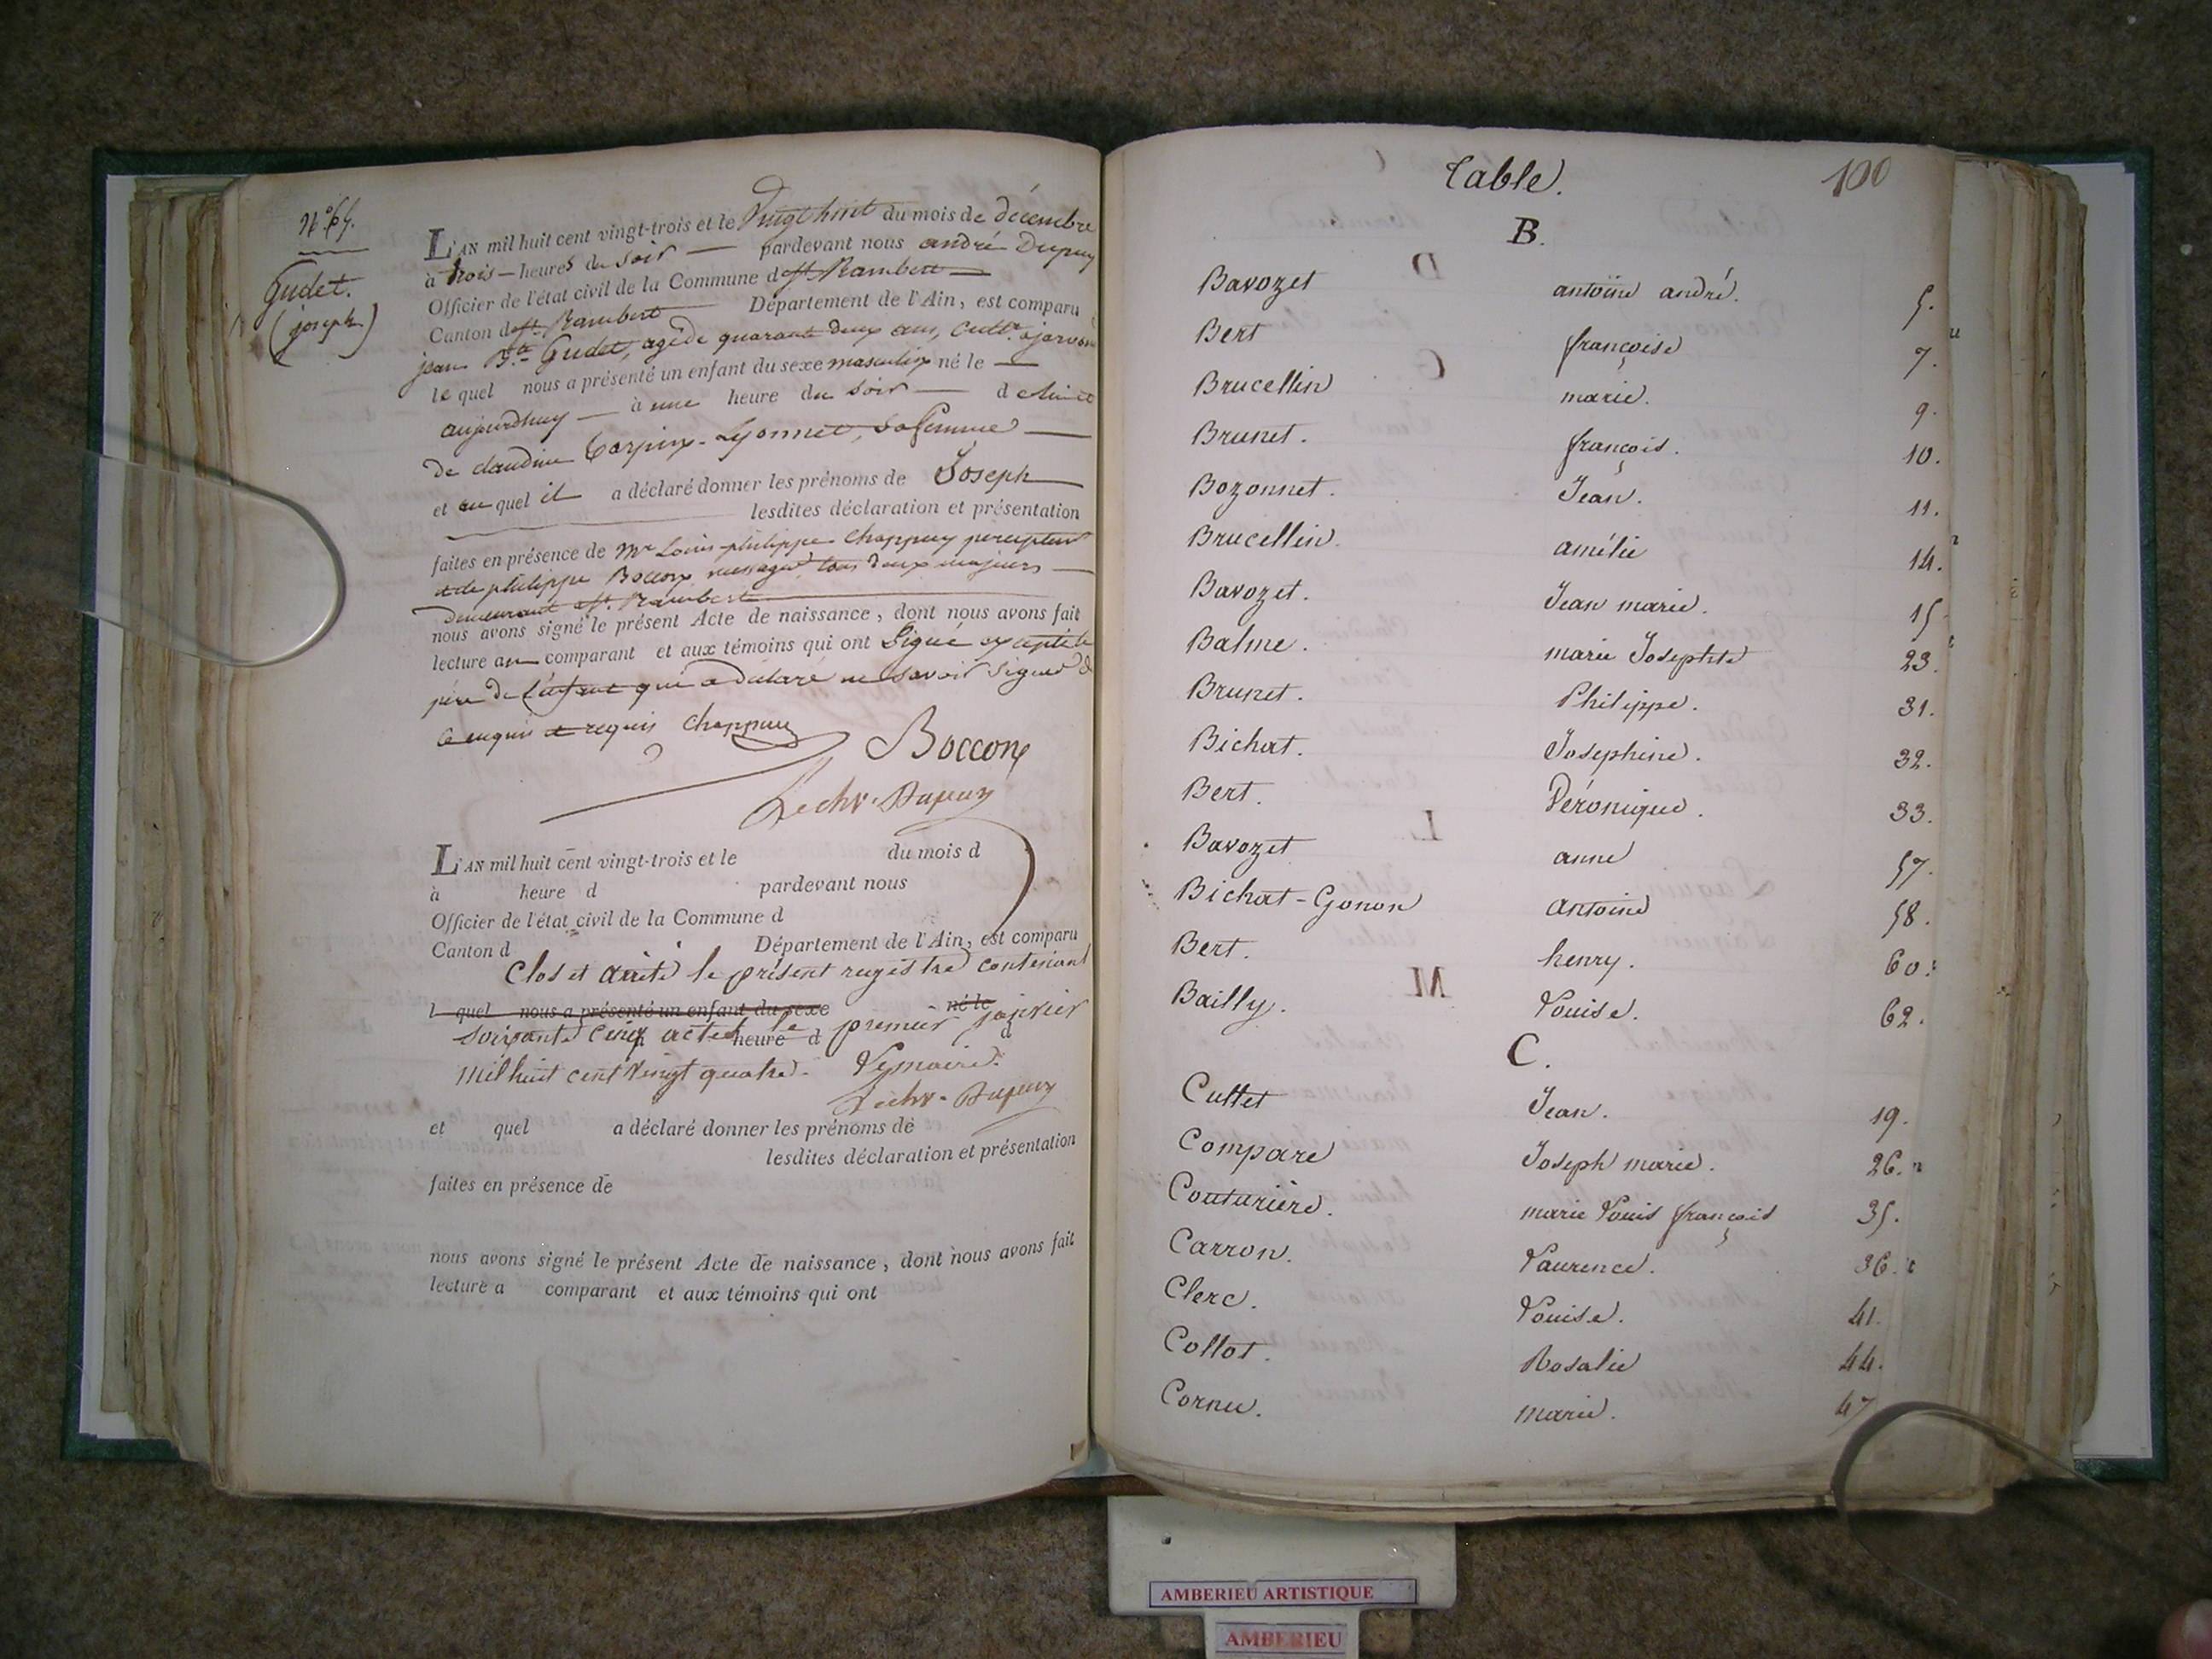 N.° 65.
Gudet.
(joseph)
L'AN mil huit cent vingt-trois et le Vingt huit du mois de décembre
à trois heures du soir pardevant nous andré Dupuy
Officier de l'état civil de la Commune de St. Rambert
Canton de St. Rambert Département de l'Ain, est comparu
jean Bte. Gudet, agé de quarante deux ans, cultr.
le quel nous a présenté un enfant du sexe masculin né le
aujourdhuy à une heure du soir d
de claudine Carpin-Lyonnet, sa femme
et au quel il a déclaré donner les prénoms de Joseph
lesdites déclaration et présentation
faites en présence de Mr Louis philippe Chappuy percepteur
et de philippe Boccon messager tous deux majeurs
demeurant à St. Rambert
nous avons signé le présent Acte de naissance, dont nous avons fait
lecture au comparant et aux témoins qui ont Signé excepté le
père de l'enfant qui a déclaré ne savoir signer de
ce enquis et requis Chappuy
Boccon
Lechr. Dupuy
L'AN mil huit cent vingt-trois et le du mois d
à heure d pardevant nous
Officier de l'état civil de la Commune d
Canton d Département de l'Ain, est comparu
Clos et arrêté le présent registre contenant
l quel nous a présenté un enfant du sexe né le
soixante cinq actes le premier janvier
heure d d
mil huit cent vingt quatre. Le maire.
Lechr. Dupuy
et quel a déclaré donner les prénoms de
lesdites déclaration et présentation
faites en présence de
nous avons signé le présent Acte de naissance, dont nous avons fait
lecture a comparant et aux témoins qui ont
Table. 100
B.
Bavozet antoine andré. 5.
Bert françoise 7.
Brucellin marie. 9.
Brunet. françois. 10.
Bozonnet. Jean. 11.
Brucellin. amélie 14.
Bavozet. Jean marie. 15
Balme. marie Josephte 23.
Brunet. Philippe. 31.
Bichat. Josephine. 32.
Bert. Véronique. 33.
Bavozet anne 57.
Bichat-Gonon antoine 58.
Bert. henry. 60.
Bailly. Louise. 62.
C.
Cuttet Jean. 19.
Compare Joseph marie. 26.
Couturière. marie Louis françois 35.
Carron. Laurence. 36.
Clerc. Louise. 41.
Collot. Rosalie 44.
Cornu. marie. 47
AMBERIEU ARTISTIQUE
AMBERIEU